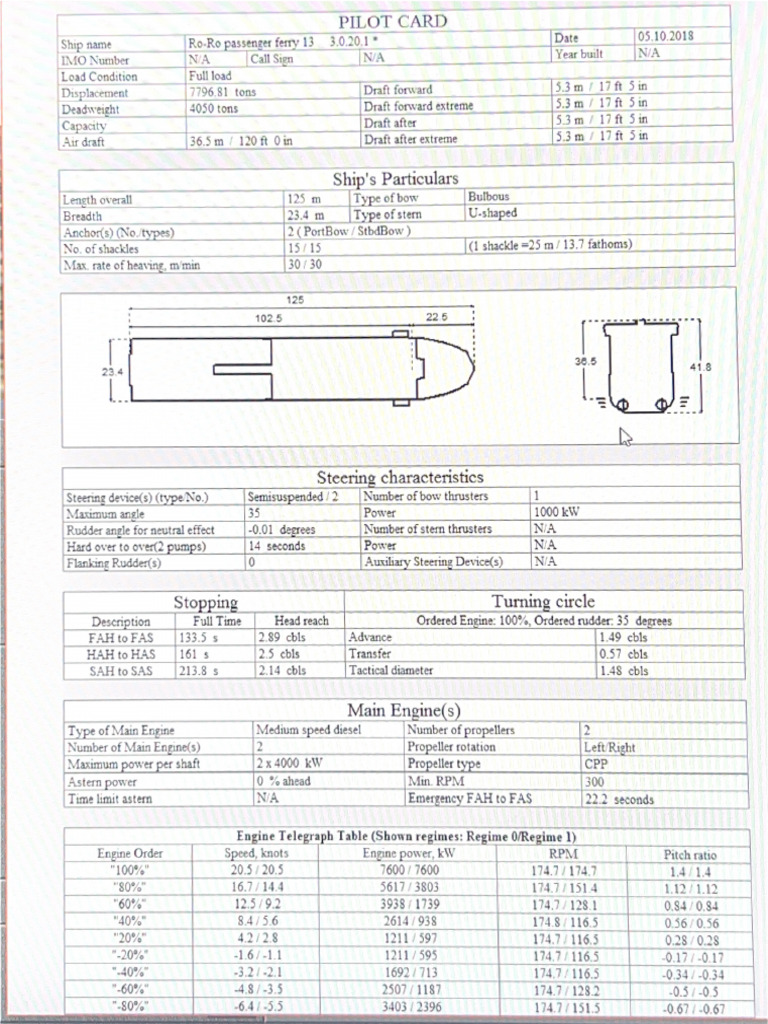 PILOT CARD
Ship name Ro-Ro passenger ferry 13 3.0.20.1 * Date 05.10.2018
IMO Number N/A Call Sign N/A Year built N/A
Load Condition Full load
Displacement 7796.81 tons Draft forward 5.3 m / 17 ft 5 in
Deadweight 4050 tons Draft forward extreme 5.3 m / 17 ft 5 in
Capacity Draft after 5.3 m / 17 ft 5 in
Air draft 36.5 m / 120 ft 0 in Draft after extreme 5.3 m / 17 ft 5 in
Ship's Particulars
Length overall 125 m Type of bow Bulbous
Breadth 23.4 m Type of stern U-shaped
Anchor(s) (No./types) 2 ( PortBow / StbdBow )
No. of shackles 15 / 15 (1 shackle =25 m / 13.7 fathoms)
Max. rate of heaving, m/min 30 / 30
125
102.5 22.5
23.4 36.5 41.8
Steering characteristics
Steering device(s) (type/No.) Semisuspended / 2 Number of bow thrusters 1
Maximum angle 35 Power 1000 kW
Rudder angle for neutral effect -0.01 degrees Number of stern thrusters N/A
Hard over to over(2 pumps) 14 seconds Power N/A
Flanking Rudder(s) 0 Auxiliary Steering Device(s) N/A
Stopping Turning circle
Description Full Time Head reach Ordered Engine: 100%, Ordered rudder: 35 degrees
FAH to FAS 133.5 s 2.89 cbls Advance 1.49 cbls
HAH to HAS 161 s 2.5 cbls Transfer 0.57 cbls
SAH to SAS 213.8 s 2.14 cbls Tactical diameter 1.48 cbls
Main Engine(s)
Type of Main Engine Medium speed diesel Number of propellers 2
Number of Main Engine(s) 2 Propeller rotation Left/Right
Maximum power per shaft 2 x 4000 kW Propeller type CPP
Astern power 0 % ahead Min. RPM 300
Time limit astern N/A Emergency FAH to FAS 22.2 seconds
Engine Telegraph Table (Shown regimes: Regime 0/Regime 1)
Engine Order Speed, knots Engine power, kW RPM Pitch ratio
"100%" 20.5 / 20.5 7600 / 7600 174.7 / 174.7 1.4 / 1.4
"80%" 16.7 / 14.4 5617 / 3803 174.7 / 151.4 1.12 / 1.12
"60%" 12.5 / 9.2 3938 / 1739 174.7 / 128.1 0.84 / 0.84
"40%" 8.4 / 5.6 2614 / 938 174.8 / 116.5 0.56 / 0.56
"20%" 4.2 / 2.8 1211 / 597 174.7 / 116.5 0.28 / 0.28
"-20%" -1.6 / -1.1 1211 / 595 174.7 / 116.5 -0.17 / -0.17
"-40%" -3.2 / -2.1 1692 / 713 174.7 / 116.5 -0.34 / -0.34
"-60%" -4.8 / -3.5 2507 / 1187 174.7 / 128.2 -0.5 / -0.5
"-80%" -6.4 / -5.5 3403 / 2396 174.7 / 151.5 -0.67 / -0.67